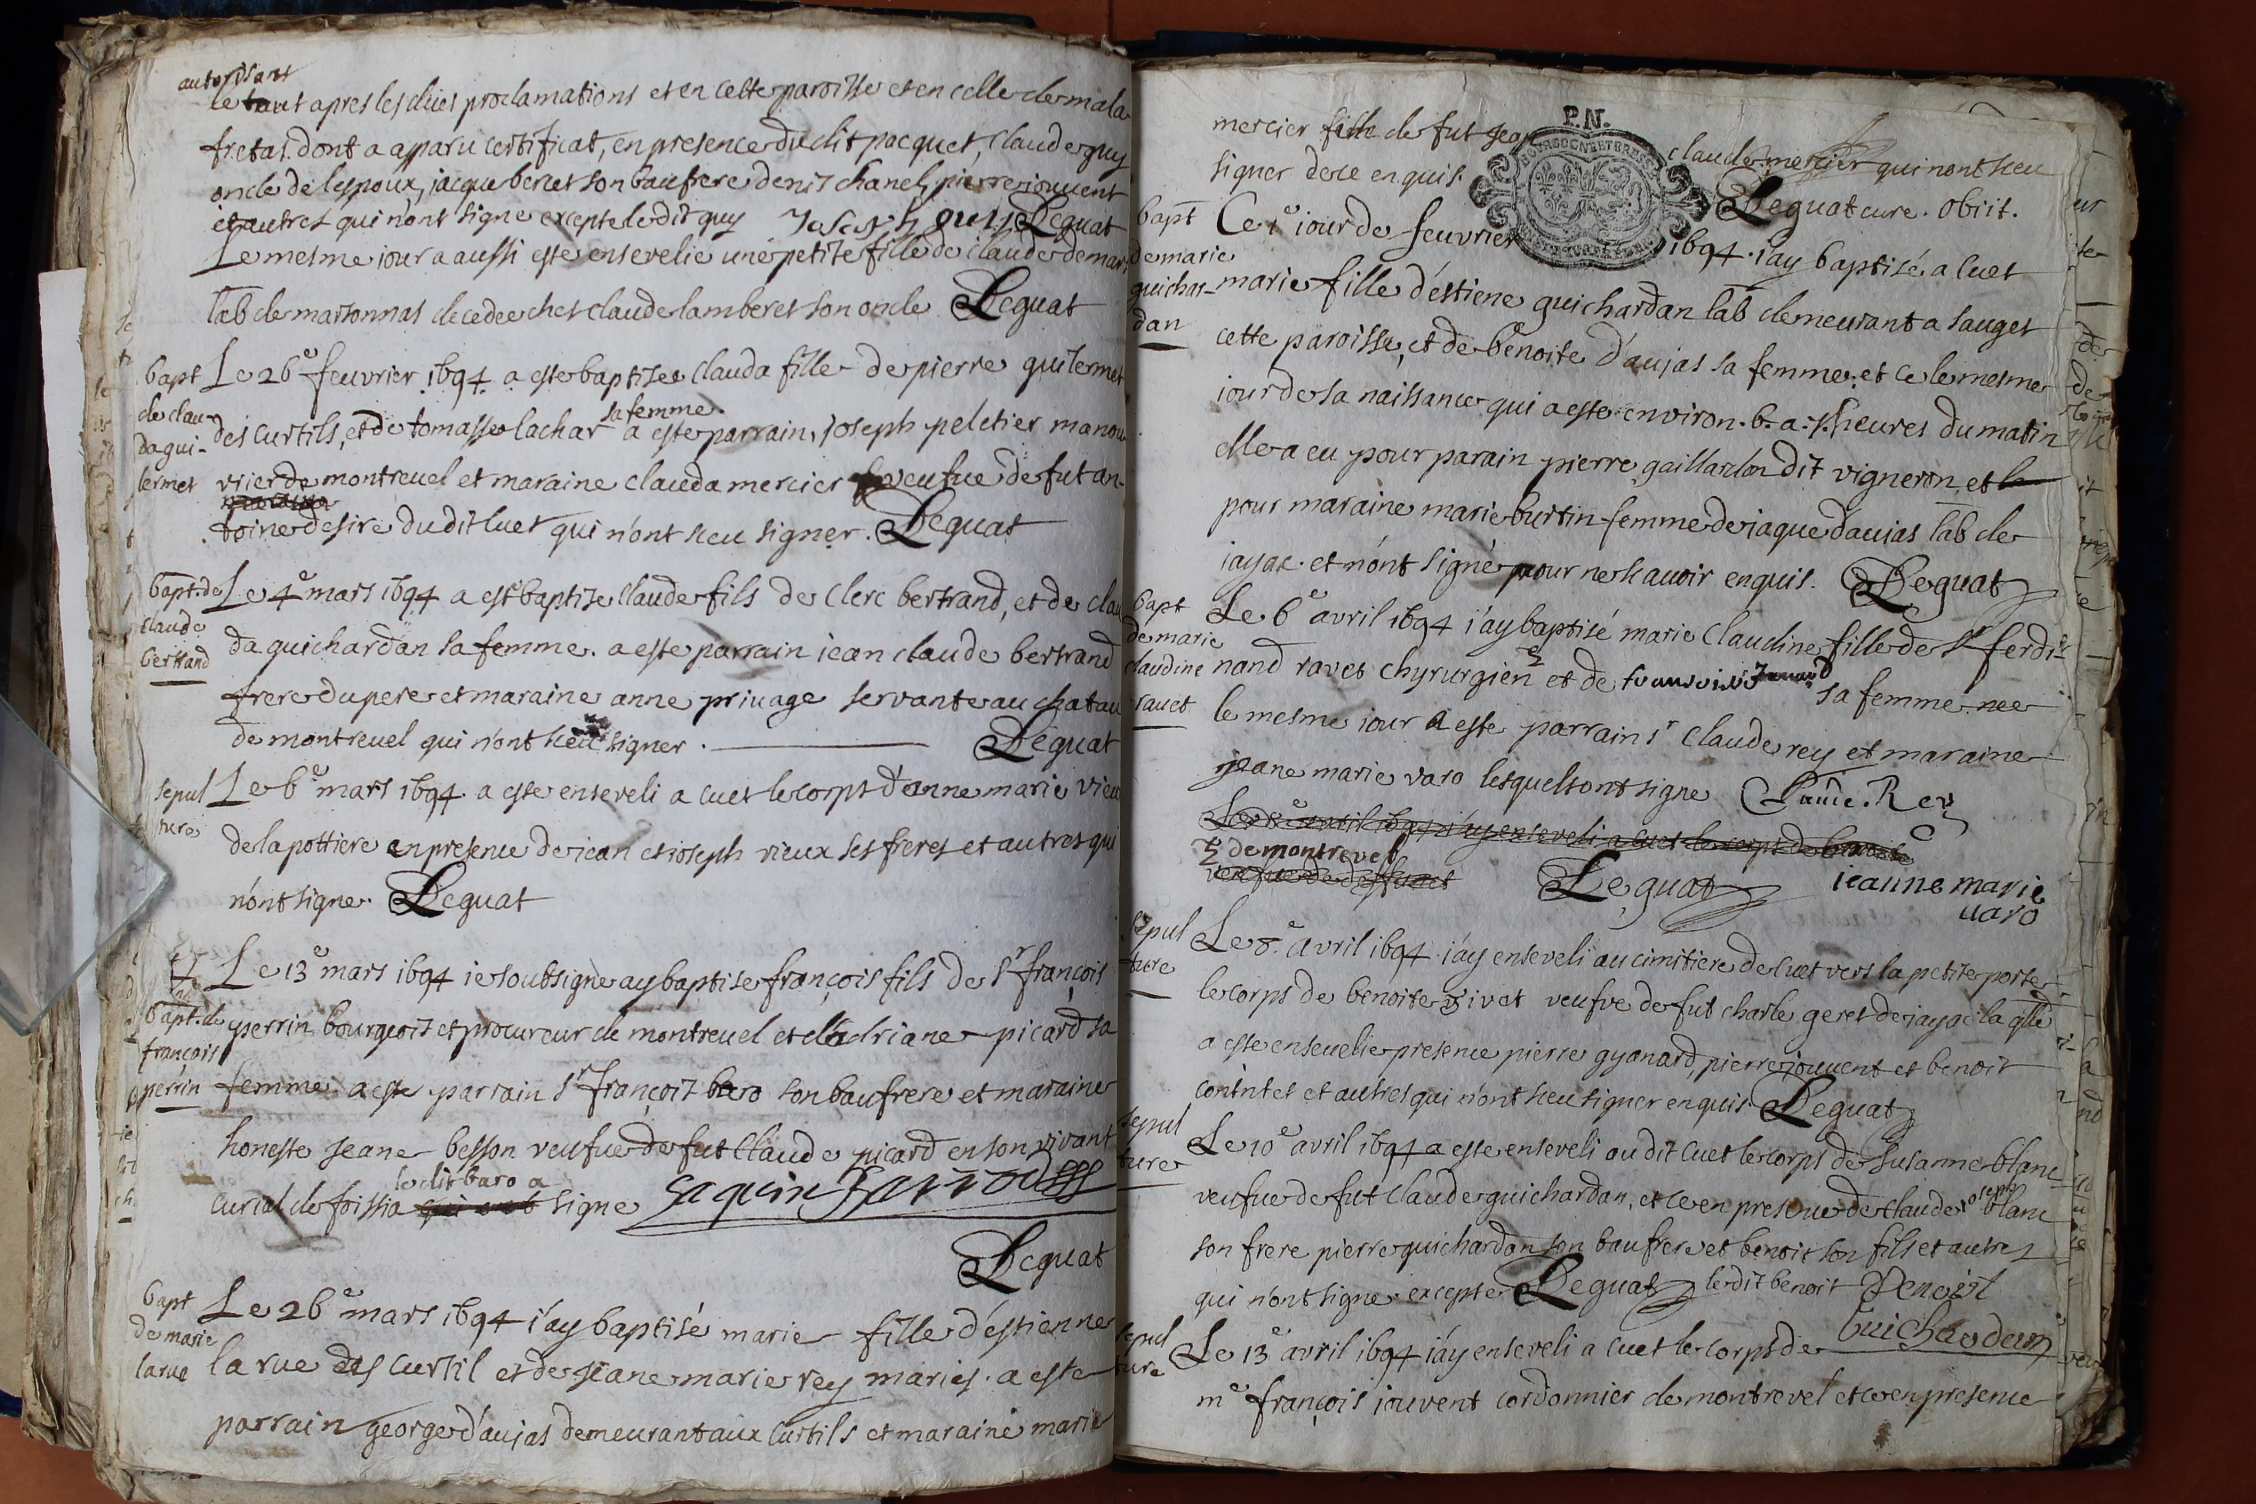 autorisant
le tout apres les dües proclamations et en cette paroisse et en celle de mala
fretas dont a apparu certificat, en presence dudit pacquet, Claude guy
oncle de lespoux, jacque bercet son baufrere denis chanel, pierre jouvent
et autres qui n'ont signe excepte ledit guy Joseph guy Leguat
Le mesme iour a aussi este ensevelie une petite fille de claude demar
lab de marsonnas decedee ches claude lamberet son oncle Leguat
bapt
de clau-
da gui-
lermet
Le 26e feuvrier 1694 a este baptisee Clauda fille de pierre guilermet
sa femme.
des curtils, et de tomasse lachar a este parrain, joseph peletier manou
vrier de montrevel et maraine clauda mercier veufue de fut an-
toine desire du dit Cuet qui n'ont sceu signer. Leguat
bapt. de
Claude
bertrand
Le 4e mars 1694 a este baptise Claude fils de Clerc bertrand, et de clau
da guichardan sa femme. a este parrain jean claude bertrand
frere du pere et maraine anne privage servante au chatau
de montrevel qui n'ont sceu signer. Leguat
sepul
ture
Le 6e mars 1694 a este enseveli a cuet le corps d'anne marie vieux
de la pottiere en presence de jean et joseph vieux ses freres et autres qui
n'ont signe. Leguat
bapt. de
françois
perrin
Le 13e mars 1694 ie soubsigne ay baptise françois fils de Sr françois
perrin bourgeois et procureur de montrevel et d'adriane picard sa
femme a este parrain Sr françois baro son baufrere et maraine
honeste jeane besson veufue de fut Claude picard en son vivant
ledit baro a
curial de foissia qui ont signe
Leguat
bapt
de marie
larue
Le 26e mars 1694 i'ay baptisé marie fille d'estienne
la rue des curtil et de jeane marie rey mariés. a este
parrain george d'aujas demeurant aux curtils et maraine marie
mercier fille de fut jean claude mercier qui n'ont sceu
signer de ce enquis. Leguat cure. obiit.
P.N.
bapt
de marie
guichar-
dan
Ce 1e iour de feuvrier 1694. i'ay baptisé a Cuet
marie fille d'estiene guichardan lab demeurant a sauget
cette paroisse, et de benoite d'aujas sa femme. et ce le mesme
iour de sa naissance qui a este environ. 6. a. 7. heures du matin
elle a eu pour parain pierre gaillardon dit vigneron et le
pour maraine marie burtin femme de jaque d'aujas lab de
jayac. et n'ont signé pour ne scavoir enquis. Leguat
bapt
de marie
claudine
ravet
Le 6e avril 1694 i'ay baptisé marie Claudine fille de Sr ferdi-
nand ravet chyrurgien et de francoise sa femme nee
le mesme iour a este parrain Sr Claude rey et maraine
jeane marie varo lesquels ont signe Claude. Rey
Le 8e avril 1694 i'ay enseveli a cuet le corps de benoite
de montrevel
veufue de deffunct
Leguat
ieanne marie
uaro
sepul
ture
Le 8e avril 1694. i'ay enseveli au cimitiere de cuet vers la petite porte
le corps de benoite vivet veufve de fut charle geret de jayac la qlle
a este ensevelie presence pierre gyanard, pierre jouvent et benoit
contntet et autres qui n'ont sceu signer enquis. Leguat
sepul
ture
Le 10e avril 1694 a este enseveli au dit Cuet le corps de susanne blanc
veufue de fut claude guichardan, et ce en presence de claude joseph blanc
son frere pierre guichardan son baufrere et benoit son fils et autres
qui n'ont signe excepte Leguat ledit benoit Benoist
Guichardan
sepul
ture
Le 13e avril 1694 i'ay enseveli a cuet le corps de
me françois jouvent cordonnier de montrevel et ce en presence